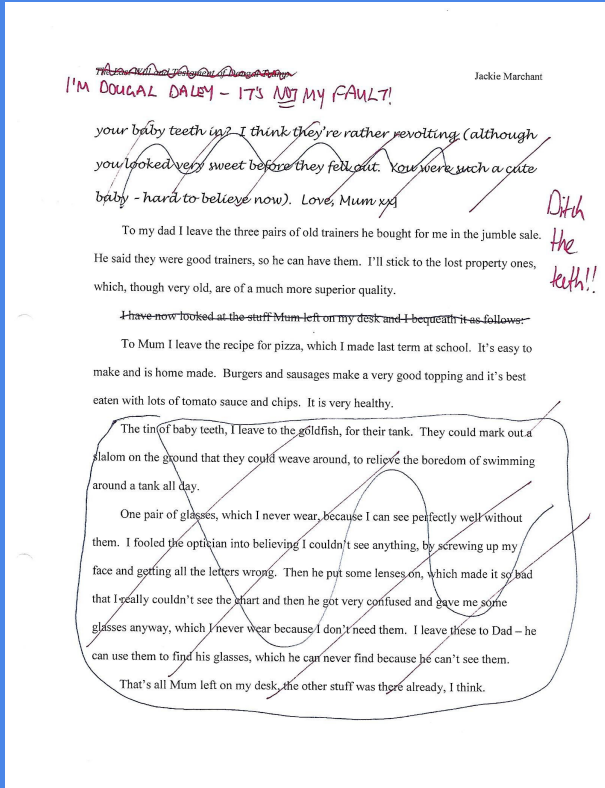 The Last Will and Testament of Dougal Trump
Jackie Marchant
I'M DOUGAL DALEY - IT'S NOT MY FAULT!
your baby teeth in? I think they're rather revolting (although
you looked very sweet before they fell out. You were such a cute
baby - hard to believe now). Love, Mum xx
Ditch
the
teeth!!
To my dad I leave the three pairs of old trainers he bought for me in the jumble sale.
He said they were good trainers, so he can have them. I'll stick to the lost property ones,
which, though very old, are of a much more superior quality.
I have now looked at the stuff Mum left on my desk and I bequeath it as follows:
To Mum I leave the recipe for pizza, which I made last term at school. It's easy to
make and is home made. Burgers and sausages make a very good topping and it's best
eaten with lots of tomato sauce and chips. It is very healthy.
The tin of baby teeth, I leave to the goldfish, for their tank. They could mark out a
slalom on the ground that they could weave around, to relieve the boredom of swimming
around a tank all day.
One pair of glasses, which I never wear, because I can see perfectly well without
them. I fooled the optician into believing I couldn't see anything, by screwing up my
face and getting all the letters wrong. Then he put some lenses on, which made it so bad
that I really couldn't see the chart and then he got very confused and gave me some
glasses anyway, which I never wear because I don't need them. I leave these to Dad – he
can use them to find his glasses, which he can never find because he can't see them.
That's all Mum left on my desk, the other stuff was there already, I think.